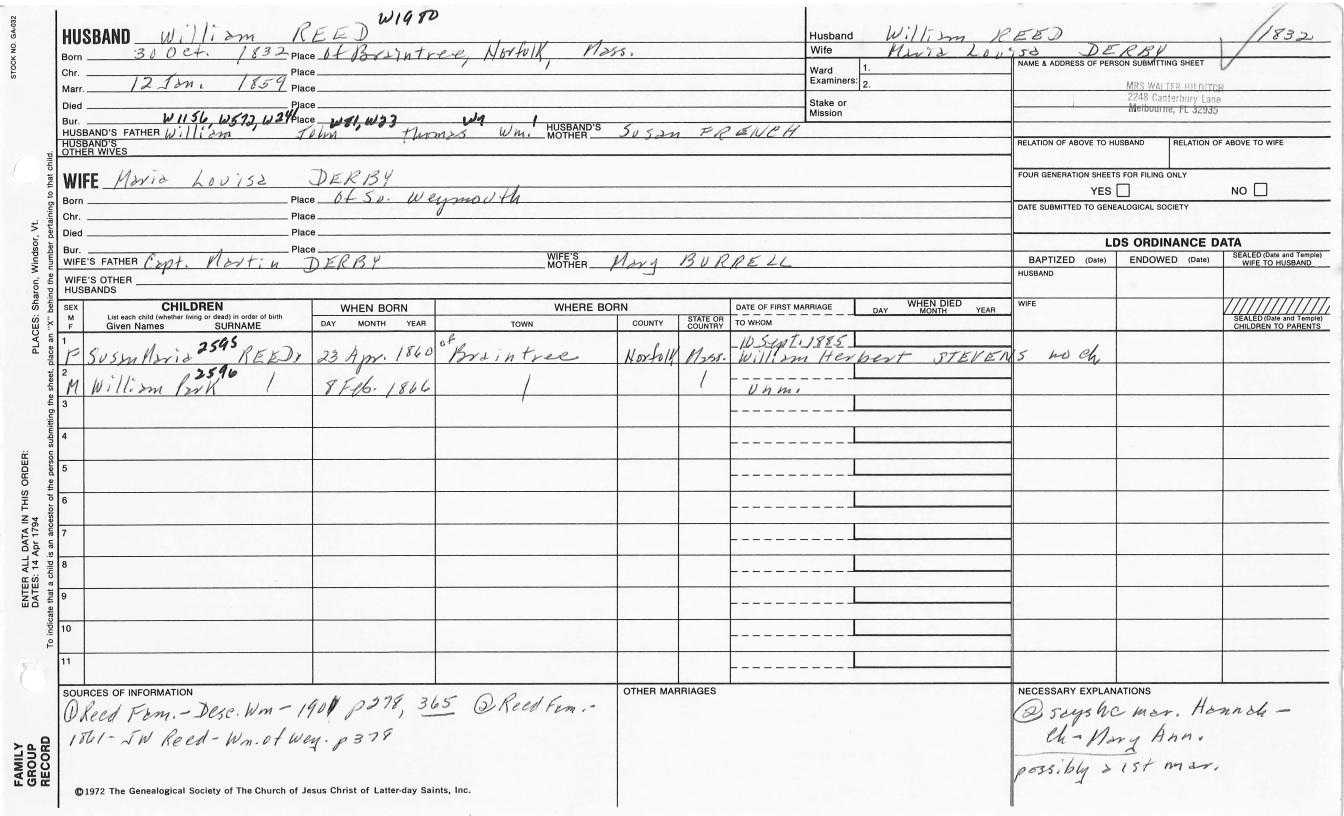 STOCK NO. GA-032
W1980
HUSBAND William REED
Born 30 Oct. 1832 Place of Braintree, Norfolk, Mass.
Chr. Place
Marr. 12 Jan. 1859 Place
Died Place
Bur. Place
W1156, W572, W246 W81, W23 W9 1
HUSBAND'S FATHER William John Thomas Wm. HUSBAND'S MOTHER Susan FRENCH
HUSBAND'S OTHER WIVES
WIFE Maria Louisa DERBY
Born Place of So. Weymouth
Chr. Place
Died Place
Bur. Place
WIFE'S FATHER Capt. Martin DERBY WIFE'S MOTHER Mary BURRELL
WIFE'S OTHER HUSBANDS
Husband William REED 1832
Wife Maria Louisa DERBY
Ward Examiners: 1.
2.
Stake or Mission
NAME & ADDRESS OF PERSON SUBMITTING SHEET
MRS WALTER HILDITCH
2248 Canterbury Lane
Melbourne, FL 32935
RELATION OF ABOVE TO HUSBAND RELATION OF ABOVE TO WIFE
FOUR GENERATION SHEETS FOR FILING ONLY
YES NO
DATE SUBMITTED TO GENEALOGICAL SOCIETY
LDS ORDINANCE DATA
BAPTIZED (Date) ENDOWED (Date) SEALED (Date and Temple) WIFE TO HUSBAND
HUSBAND
WIFE
SEALED (Date and Temple) CHILDREN TO PARENTS
SEX M F
CHILDREN
List each child (whether living or dead) in order of birth
Given Names SURNAME
WHEN BORN
DAY MONTH YEAR
WHERE BORN
TOWN COUNTY STATE OR COUNTRY
DATE OF FIRST MARRIAGE
TO WHOM
WHEN DIED
DAY MONTH YEAR
10 Sept. 1885
1 F Susan Maria 2595 REED 23 Apr. 1860 of Braintree Norfolk Mass. William Herbert STEVENS no ch
2 M William Park 2596 8 Feb. 1866 unm.
3
4
5
6
7
8
9
10
11
SOURCES OF INFORMATION
① Reed Fam.- Desc. Wm - 1901 p278, 365 ② Reed Fam.-
1861- JW Reed- Wm. of Wey. p378
OTHER MARRIAGES
NECESSARY EXPLANATIONS
② says he mar. Hannah -
ch - Mary Ann.
possibly a 1st mar.
©1972 The Genealogical Society of The Church of Jesus Christ of Latter-day Saints, Inc.
PLACES: Sharon, Windsor, Vt.
ENTER ALL DATA IN THIS ORDER:
DATES: 14 Apr 1794
To indicate that a child is an ancestor of the person submitting the sheet, place an "X" behind the number pertaining to that child.
FAMILY
GROUP
RECORD